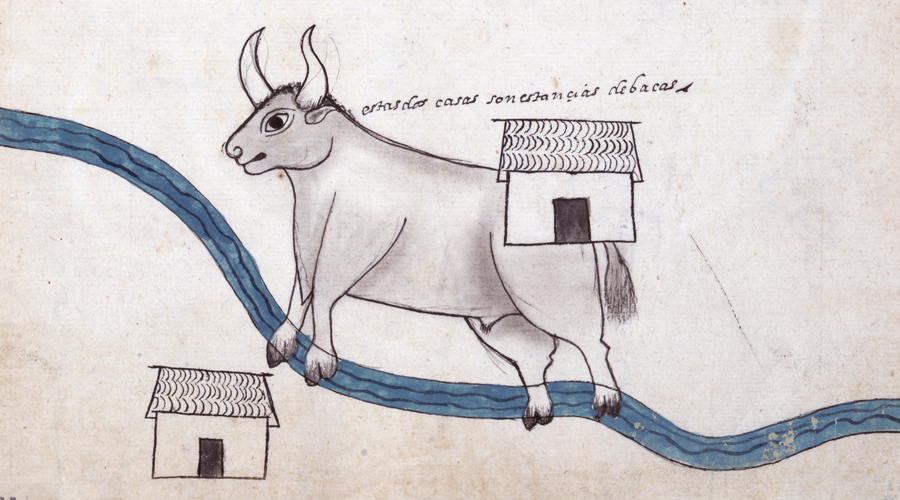 estas dos casas son estançias debacas